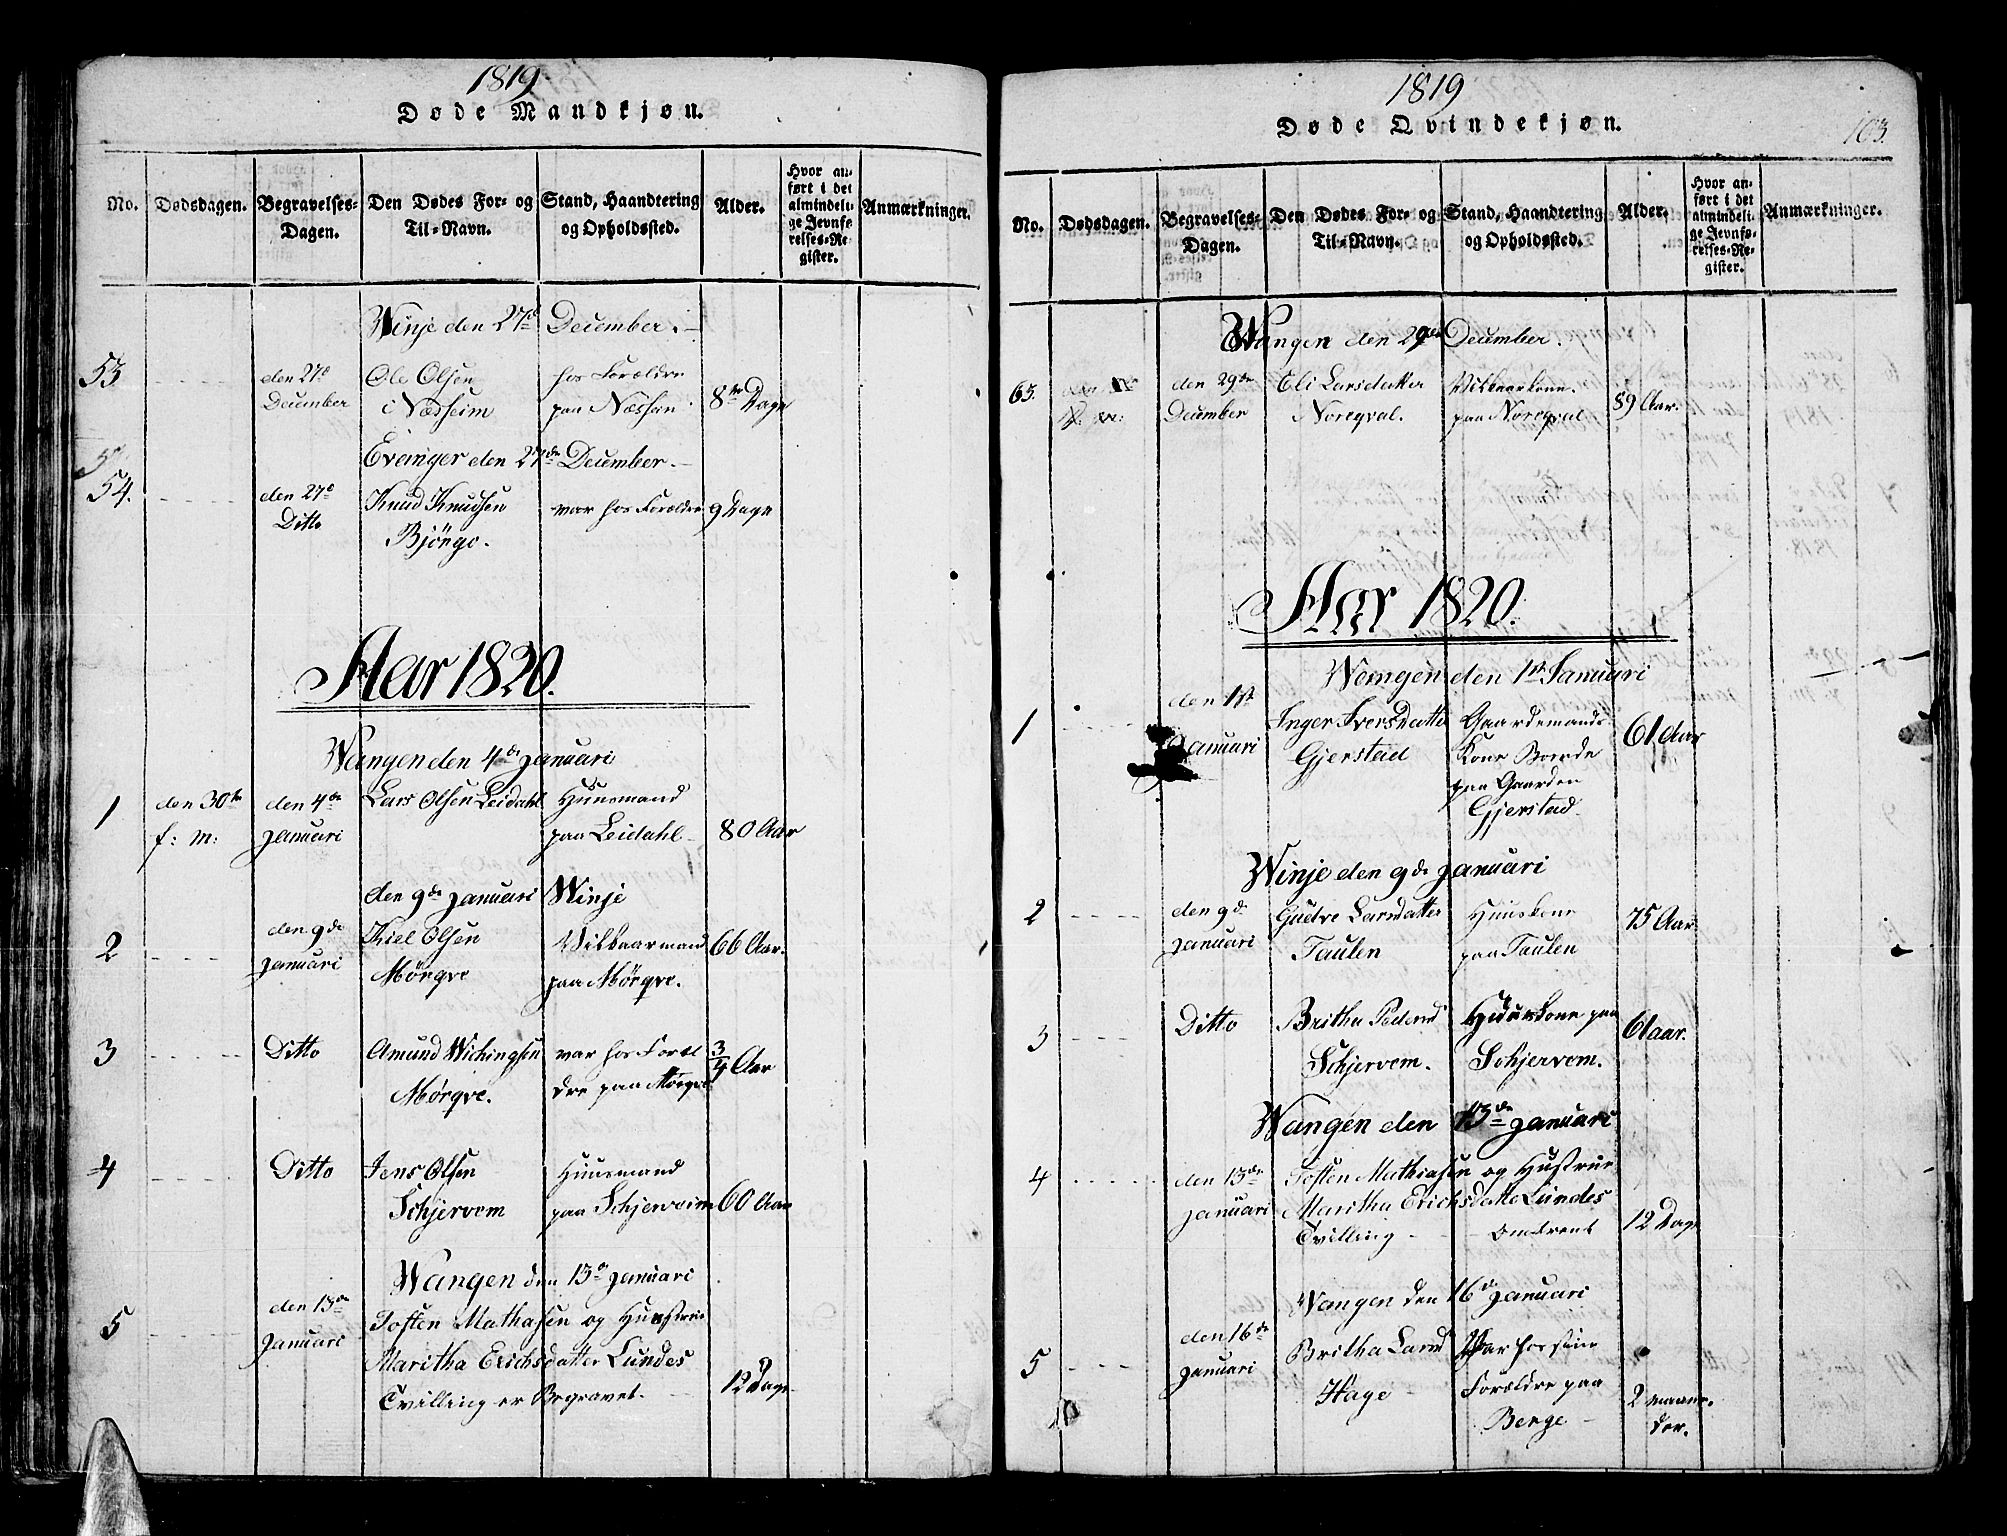 1819
Døde Mandkjøn.
No.
Dødsdagen.
Begravelses-
Dagen.
Den Dødes For- og
Til-Navn.
Stand, Haandtering
og Opholdssted.
Alder.
Hvor an-
ført i det
almindeli-
ge Jevnfø-
relses-Re-
gister.
Anmærkninger.
Winje den 27de December.
53
den 27de
December
Ole Olsen
i Næsheim
hos Forældre
paa Næsheim
8te Dage
Evanger den 27de December.
54.
den 27de
Ditto
Knud Knudsen
Bjørgo.
var hos Forældre
9 Dage
Aar 1820.
Wangen den 4de Januari
1
den 30te
f: m:
den 4de
Januari
Lars Olsen Leidahl
Huusmand
paa Leidahl
80 Aar
den 9de Januari Winje
2
den 9de
Januari
Kiel Olsen
Mørqve
Vilkaarmand
paa Mørqve.
66 Aar.
3
Ditto
Amund Wichingsen
Mørqve.
var hos Foræl
dre paa Mørqve
3/4 Aar
4
Ditto
Jens Olsen
Schjervem
Huusmand
paa Schjerveim
60 Aar
Wangen den 13de Januari
5
den 13de
Januari
Tosten Mathasen og Hustrue
Maritha Erichsdatter Lundes
Tvilling er Begravet.
12 Dage
1819
Døde Qvindekjøn.
103.
No.
Dødsdagen.
Begravelses-
Dagen.
Den Dødes For- og
Til-Navn.
Stand, Haandtering
og Opholdssted.
Alder.
Hvor an-
ført i det
almindeli-
ge Jevnfø-
relses-Re-
gister.
Anmærkninger.
Wangen den 29de December.
63.
den 29de
December
Eli Larsdatter
Noreqval.
Vilkaarkone.
paa Noreqval
89 Aar.
Aar 1820.
Wangen den 1ste Januari
1
den 1ste
Januari
Inger Iversdatter
Gjerstad
Gaardemands
Kone Boende
paa Gaarden
Gjerstad
61 Aar
Winje den 9de Januari
2
den 9de
Januari
Gudve Larsdatter
Taulen
Huuskone
paa Taulen
75 Aar
3
Ditto
Britha Pedersd
Schjervem.
Huuskone paa
Schjervem.
61 aar.
Wangen den 13de Januari
4
den 13de
Januari
Tosten Mathiasen og Hustrue
Maritha Erichsdatte Lundes
Tvilling
Omtrent
12 Dage
Wangen den 16de Januari
5
den 16de
Januari
Britha Larsd
Hage
Var hos sine
Forældre paa
Berge
2 maane-
der.